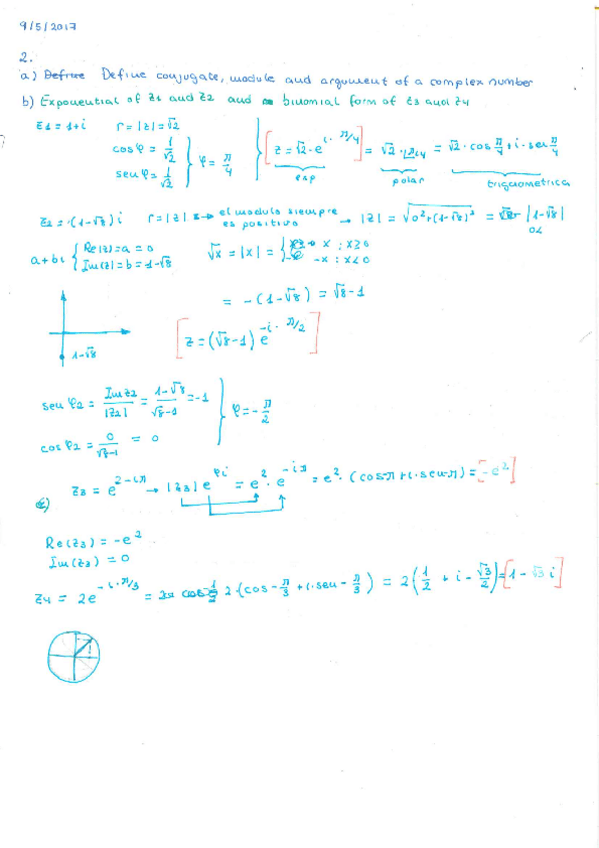 9/5/2017
2.
a) Define Define conjugate, module and argument of a complex number
b) Exponential of z1 and z2 and binomial form of z3 and z4
z1 = 1+i r = |z| = √2
cos φ = 1/√2
sen φ = 1/√2
φ = π/4
[z = √2 · e^(i · π/4)] = √2 · |π/4 = √2 · cos π/4 + i · sen π/4
exp polar trigonometrica
z2 = (1-√8) i r = |z| → el modulo siempre es positivo → |z| = √(0² + (1-√8)²) = |1-√8|
0<
a+bi { Re(z) = a = 0
Im(z) = b = 1-√8
√x = |x| = { x : x≥0
-x : x<0
= -(1-√8) = √8-1
[z = (√8-1) e^(-i · π/2)]
1-√8
sen φ2 = Im z2/|z2| = 1-√8/√8-1 = -1
φ = -π/2
cos φ2 = 0/√8-1 = 0
c) z3 = e^(2-iπ) → |z3| e^(φi) = e² · e^(-iπ) = e² · (cos π + i · sen π) = [-e²]
Re(z3) = -e²
Im(z3) = 0
z4 = 2e^(-i · π/3) = 2 (cos -π/3 + i · sen -π/3) = 2 (1/2 + i - √3/2) = [1 - √3 i]